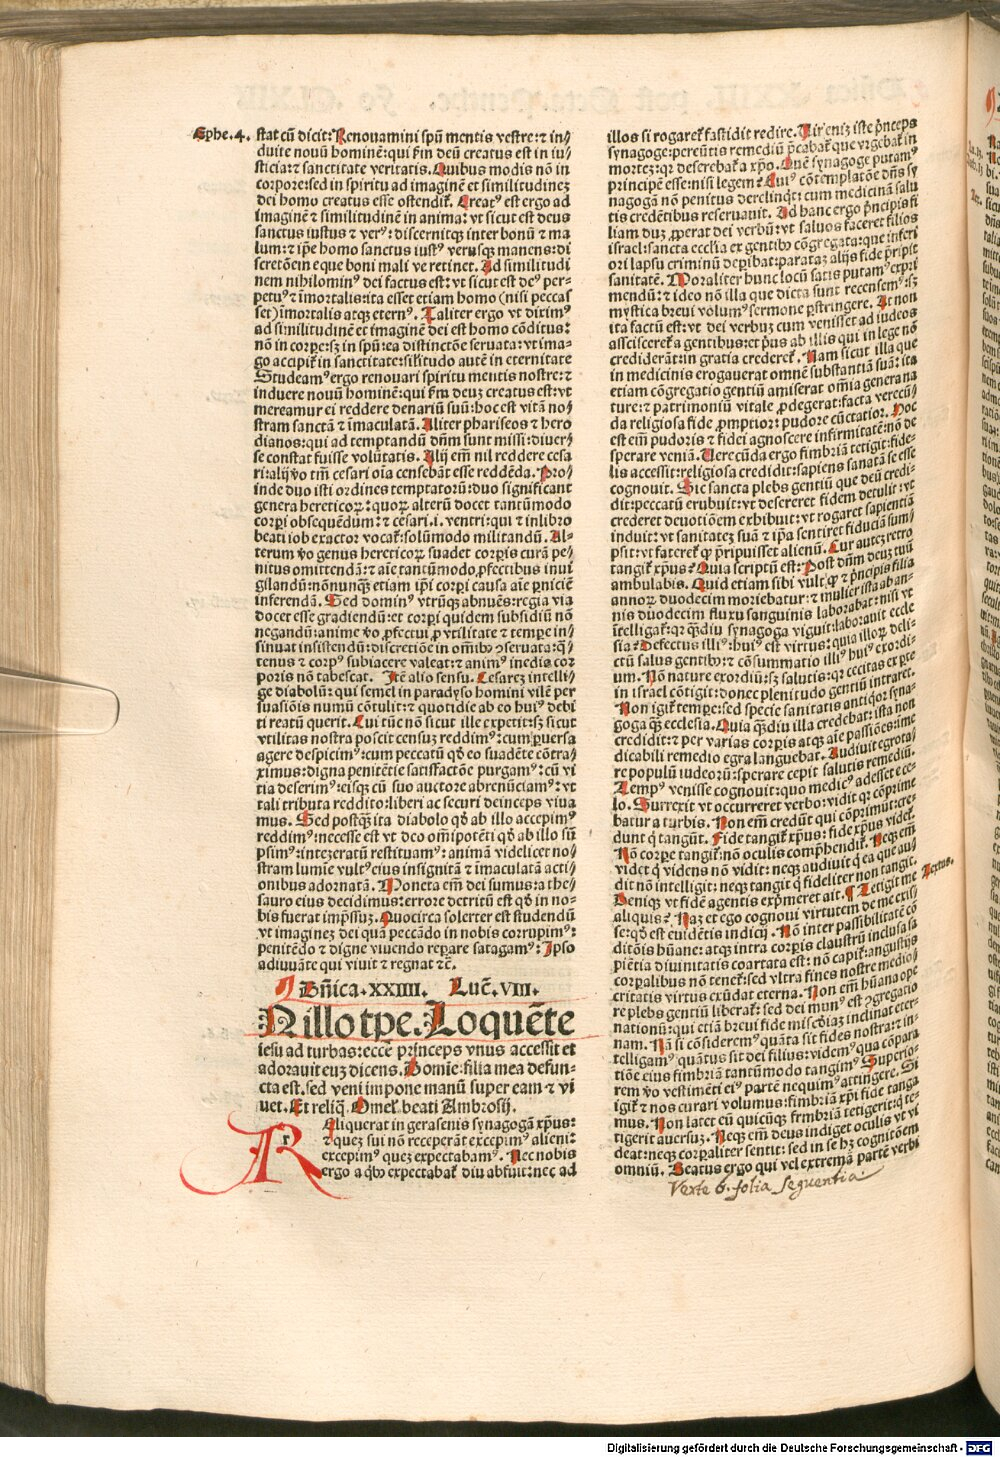 Ephe.4.
stat cũ dicit: Renouamini spũ mentis vestre: ⁊ in/
duite nouũ hominẽ: qui ẜm deũ creatus est in iu/
sticia: ⁊ sanctitate veritatis. Quibus modis nõ in
corpore: sed in spiritu ad imaginẽ et similitudineꝫ
dei homo creatus esse ostendit᷑. Creatꝰ est ergo ad
imaginẽ ⁊ similitudinẽ in anima: vt sicut est deus
sanctus iustus ⁊ verꝰ: discernitqꝫ inter bonũ ⁊ ma
lum: ⁊ ip̃e homo sanctus iustꝰ verusqꝫ manens: di
scretõem eque boni mali ve retinet. Ad similitudi
nem nihilominꝰ dei factus est: vt sicut est deꝰ per-
petuꝰ ⁊ ĩmortalis: ita esset etiam homo (nisi peccas
set) ĩmortalis atqꝫ eternꝰ. Taliter ergo vt diximꝰ
ad similitudinẽ et imaginẽ dei est homo cõditus:
nõ in corꝑe: sꝫ in spũ: ea distinctõe seruata: vt ima-
go accipit᷑ in sanctitate: silitudo autẽ in eternitate
Studeamꝰ ergo renouari spiritu mentis nostre: ⁊
induere nouũ hominẽ: qui ẜm deũ creatus est: vt
mereamur ei reddere denariũ suũ: hoc est vitã no/
stram sanctã ⁊ ĩmaculatã. Aliter phariseos ⁊ hero
dianos: qui ad temptandũ dñm sunt missi: diuer/
se constat fuisse volũtatis. Alij em̃ nil reddere cesa
ri: alij ṽo tm̃ cesari oĩa censebãt esse reddẽda. Pro/
inde duo isti ordines temptatorũ: duo significant
genera hereticoꝝ: quoꝝ alterũ docet tantũmodo
corꝑi obsequẽdum: ⁊ cesari .i. ventri: qui ⁊ in libro
beati iob exactor vocat᷑: solũmodo militandũ. Al-
terum ṽo genus hereticoꝝ suadet corꝑis curã pe/
nitus omittendã: ⁊ aĩe tantũmodo ꝓfectibus inui
gilandũ: nõnunqꝫ etiam ip̃i corꝑi causa aĩe ꝑniciẽ
inferendã. Sed dominꝰ vtrũqꝫ abnuẽs: regia via
docet esse gradiendũ: et corꝑi quidem subsidiũ nõ
negandũ: anime ṽo ꝓfectui ꝓ vtilitate ⁊ temꝑe in/
sinuat insistendũ: discretiõe in om̃ibꝰ ꝯseruata: q̃/
tenus ⁊ corpꝰ subiacere valeat: ⁊ animꝰ inedia cor
poris nõ tabescat. Itẽ alio sensu. Cesareꝫ intelli-
ge diabolũ: qui semel in paradyso homini vilẽ per
suasiõis numũ cõtulit: ⁊ quotidie ab eo huiꝰ debi
ti reatũ querit. Cui tũc nõ sicut ille expetit: sꝫ sicut
vtilitas nostra poscit censuꝫ reddimꝰ: cum ꝑuersa
agere despicimꝰ: cum peccatũ qđ eo suadẽte cõtra/
ximus: digna penitẽtie satisfactõe purgamꝰ: cũ vi
tia deserimꝰ: eisqꝫ cũ suo auctore abrenũciamꝰ: vt
tali tributa reddito: liberi ac securi deinceps viua
mus. Sed postqꝫ ita diabolo qđ ab illo accepimꝰ
reddimꝰ: necesse est vt deo om̃ipotẽti qđ ab illo sũ
psimꝰ: integratũ restituamꝰ: animã videlicet no/
stram lumie vultꝰ eius insignitã ⁊ ĩmaculatã acti/
onibus adornatã. Moneta em̃ dei sumus: a the/
sauro eius decidimus: errore detritũ est qđ in no-
bis fuerat imp̃ssuꝫ. Quocirca solerter est studendũ
vt imagineꝫ dei quã peccãdo in nobis corrupimꝰ:
penitẽdo ⁊ digne viuendo reꝑare satagamꝰ: Ipso
adiuuãte qui viuit ⁊ regnat ⁊c̃.
¶ Dñica. XXIIII. Luc̃. VIII.
N illo tꝑe. Loquẽte
iesu ad turbas: ecce princeps vnus accessit et
adorauit euꝫ dicens. Domie: filia mea defun-
cta est. sed veni impone manũ super eam ⁊ vi
uet. Et reliq̃. Omel᷑. beati Ambrosij.
AR r Eliquerat in gerasenis synagogã xp̃us:
⁊ quez sui nõ receperãt excepimꝰ alieni:
excepimꝰ quez expectabamꝰ. Nec nobis
ergo a q̃bꝰ expectabat᷑ diu abfuit: nec ad
illos si rogaret᷑ fastidit redire. Uir eniꝫ iste p̃nceps
synagoge: pereũtis remediũ p̃cabat᷑ que vrgebat᷑ in
morteꝫ: qꝛ deserebat᷑ a xp̃o. Quẽ synagoge putamꝰ
principẽ esse: nisi legem? Cuiꝰ cõtemplatõe dñs sy
nagogã nõ penitus derelinqt̃: cum medicinã salu
tis credẽtibus reseruauit. Ad hanc ergo p̃ncipis fi
liam duꝫ ꝓperat dei verbũ: vt saluos faceret filios
israel: sancta ecclĩa ex gentibꝰ cõgregata: que inferi
ori lapsu criminũ deꝑibat: parataꝫ alijs fide p̃ripit
sanitatẽ. Moraliter hunc locũ satis putamꝰ exp̃ri
mendũ: ⁊ ideo nõ illa que dicta sunt recensemꝰ: sꝫ
mystica breui volumꝰ sermone ꝑstringere. At non
ita factũ est: vt dei verbuꝫ cum venisset ad iudeos
asscisceret᷑ a gentibus: et p̃us ab illis qui in lege nõ
crediderãt: in gratia crederet᷑. Nam sicut illa que
in medicinis erogauerat omnẽ substantiã suã: ita
etiam cõgregatio gentiũ amiserat om̃ia genera na
ture: ⁊ patrimoniũ vitale ꝓdegerat: facta verecũ/
da religiosa fide ꝓmptior: pudore cũctatior. Hoc
est em̃ pudoris ⁊ fidei agnoscere infirmitatẽ: nõ de
sperare veniã. Uerecũda ergo fimbriã tetigit: fide-
lis accessit: religiosa credidit: sapiens sanatã se esse
cognouit. Sic sancta plebs gentiũ que deũ credi-
dit: peccatũ erubuit: vt desereret fidem detulit: vt
crederet deuotiõem exhibuit: vt rogaret sapientiã
induit: vt sanitateꝫ suã ⁊ ip̃a sentiret fiduciã sum/
psit: vt fateret᷑ ꝙ p̃ripuisset alienũ. Cur auteꝫ retro
tangit᷑ xp̃us? Quia scriptũ est: Post dñm deuꝫ tuũ
ambulabis. Quid etiam sibi vult ꝙ ⁊ p̃ncipis filia
annoꝝ duodecim moriebatur: ⁊ mulier ista ab an-
nis duodecim fluxu sanguinis laborabat: nisi vt
ĩtelligat᷑: qꝛ q̃diu synagoga viguit: laborauit eccle
sia? Defectus illiꝰ: huiꝰ est virtus: quia illoꝝ deli-
ctũ salus gentibꝰ: ⁊ cõsummatio illiꝰ huiꝰ exordi/
um. Nõ nature exordiũ: sꝫ salutis: qꝛ cecitas ex ꝑte
in israel cõtigit: donec plenitudo gentiũ intraret.
Non igit᷑ temꝑe: sed specie sanitatis antiq̃or syna-
goga q̃ꝫ ecclesia. Quia q̃diu illa credebat: ista non
credidit: ⁊ per varias corꝑis atqꝫ aĩe passiões: ĩme
dicabili remedio egra languebat. Audiuit egrota/
re populũ iudeorũ: sperare cepit salutis remediũ.
Tempꝰ venisse cognouit: quo medicꝰ adesset e ce-
lo. Surrexit vt occurreret verbo: vidit qꝛ cõprime
batur a turbis. Non em̃ credũt qui cõprimũt: cre-
dunt q̃ tangũt. Fide tangit᷑ xp̃us: fide xp̃us videt᷑.
Nõ corꝑe tangit᷑: nõ oculis comp̃hendit᷑. Neqꝫ em̃
videt q̃ videns nõ vidit: neqꝫ audiuit q̃ ea que au/
dit nõ intelligit: neqꝫ tangit q̃ fideliter non tangit.
Deniqꝫ vt fidẽ agentis exp̃meret ait. ¶ Tetigit me
aliquis? Naꝫ et ego cognoui virtutem de me exis/
se: qđ est euidẽtis indicij. Nõ inter passibilitatẽ cõ
ditõis hũane: atqꝫ intra corꝑis claustrũ inclusa sa
piẽtia diuinitatis coartata est: nõ capit᷑: angustijs
corꝑalibus nõ tenet᷑: sed vltra fines nostre medio/
critatis virtus exũdat eterna. Non em̃ hũana ope
re plebs gentiũ liberat᷑: sed dei munꝰ est ꝯgregatio
nationũ: qui etiã breui fide miscd̃iaꝫ inclinat eter-
nam. Nã si cõsideremꝰ quãta sit fides nostra: ⁊ in-
telligamꝰ quãtus sit dei filius: videmꝰ qua cõpara
tiõe eius fimbriã tantũmodo tangimꝰ Superio-
rem ṽo vestimẽti eiꝰ partẽ nequimꝰ attingere. Si
igit᷑ ⁊ nos curari volumus: fimbriã xp̃i fide tanga
mus. Non latet eũ quicũqꝫ frmbriã tetigerit: q̃ te-
tigerit auersuꝫ. Neqꝫ em̃ deus indiget oculis vt vi
deat: neqꝫ corꝑaliter sentit: sed in se hꝫ cognitõem
omniũ. Beatus ergo qui vel extremã partẽ verbi
Textus.
Verte 6. folia sequentia
Digitalisierung gefördert durch die Deutsche Forschungsgemeinschaft - DFG